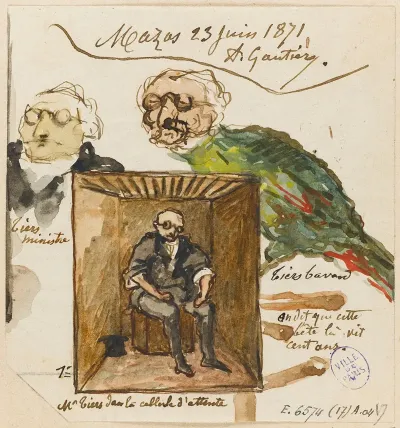 Mazas 23 juin 1871
A. Gautier.
Tiers
ministre
Tiers bavard
on dit que cette
bête là vit
cent ans.
1=
Mr Tiers dans la cellule d'attente
VILLE
DE
PARIS
E. 6574 (17) A.04